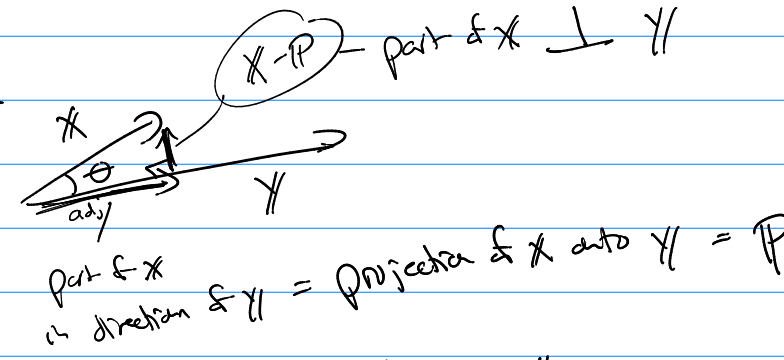 𝕏 - ℙ — part of 𝕏 ⊥ 𝕐
𝕏
θ
adj
𝕐
part of 𝕏
in direction of 𝕐 = projection of 𝕏 onto 𝕐 = ℙ